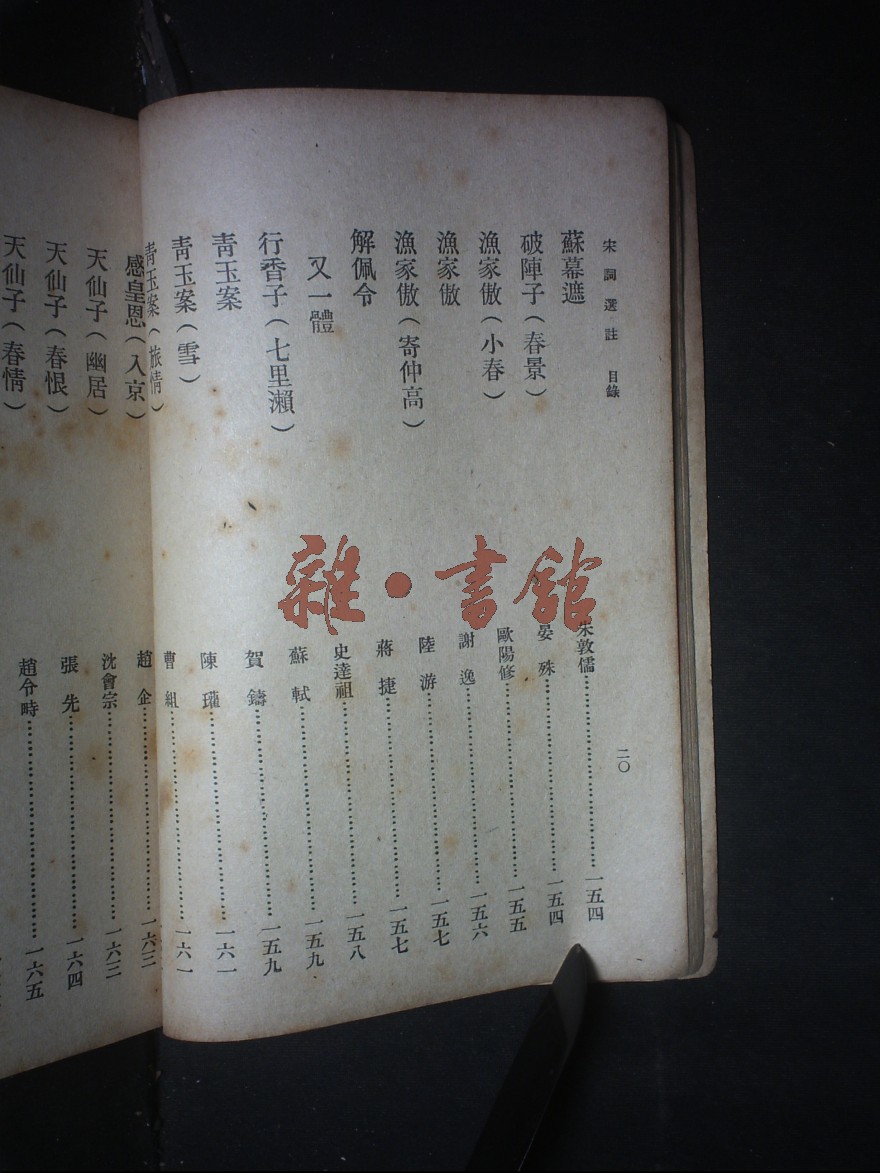 宋詞選註 目錄 二〇
蘇幕遮 朱敦儒……一五四
破陣子(春景) 晏殊……一五四
漁家傲(小春) 歐陽修……一五五
漁家傲 謝逸……一五六
漁家傲(寄仲高) 陸游……一五七
解佩令 蔣捷……一五七
又一體 史達祖……一五八
行香子(七里瀨) 蘇軾……一五九
青玉案 賀鑄……一五九
青玉案(雪) 陳瓘……一六一
青玉案(旅情) 曹組……一六一
感皇恩(入京) 趙企……
天仙子(幽居) 沈會宗……一六三
天仙子(春恨) 張先……一六四
天仙子(春情) 趙令時……一六五
雜·書館